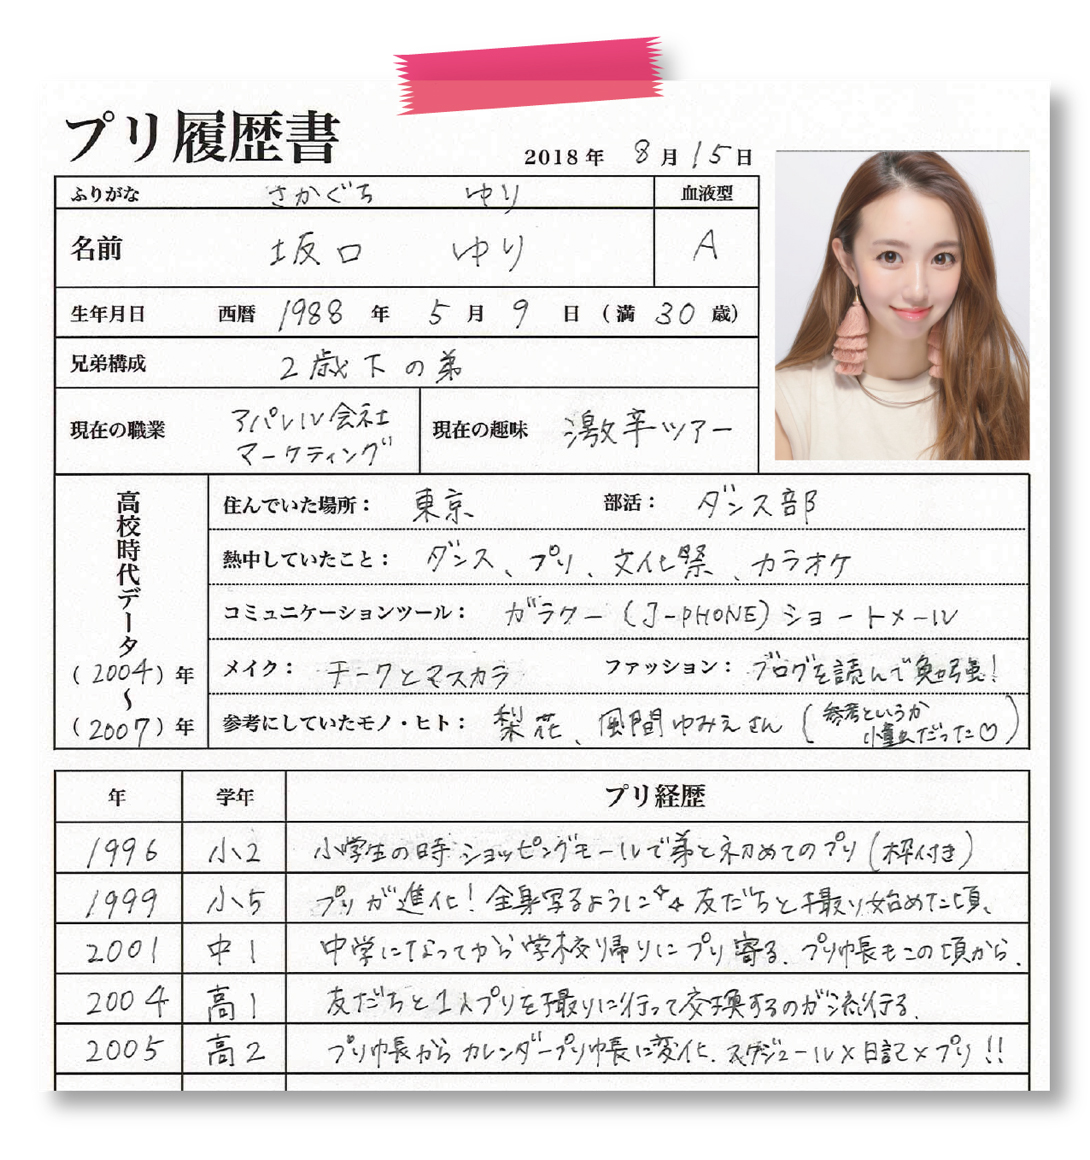 プリ履歴書
2018年 8月15日
ふりがな さかぐち ゆり 血液型
名前 坂口 ゆり A
生年月日 西暦 1988 年 5 月 9 日 (満 30 歳)
兄弟構成 2歳下の弟
現在の職業 アパレル会社 マーケティング 現在の趣味 激辛ツアー
高校時代データ
(2004)年
〜
(2007)年
住んでいた場所： 東京 部活： ダンス部
熱中していたこと： ダンス、プリ、文化祭、カラオケ
コミュニケーションツール： ガラケー(J-PHONE)ショートメール
メイク： チークとマスカラ ファッション： ブログを読んで勉強！
参考にしていたモノ・ヒト： 梨花、風間ゆみえさん(参考というか憧れだった♡)
年 学年 プリ経歴
1996 小2 小学生の時ショッピングモールで弟と初めてのプリ(枠付き)
1999 小5 プリが進化！全身写るように✧✧友だちと撮り始めた頃、
2001 中1 中学になってから学校帰りにプリ寄る、プリ帳もこの頃から、
2004 高1 友だちと1人プリを撮りに行って交換するのが流行る、
2005 高2 プリ帳からカレンダープリ帳に変化、スケジュール×日記×プリ!!